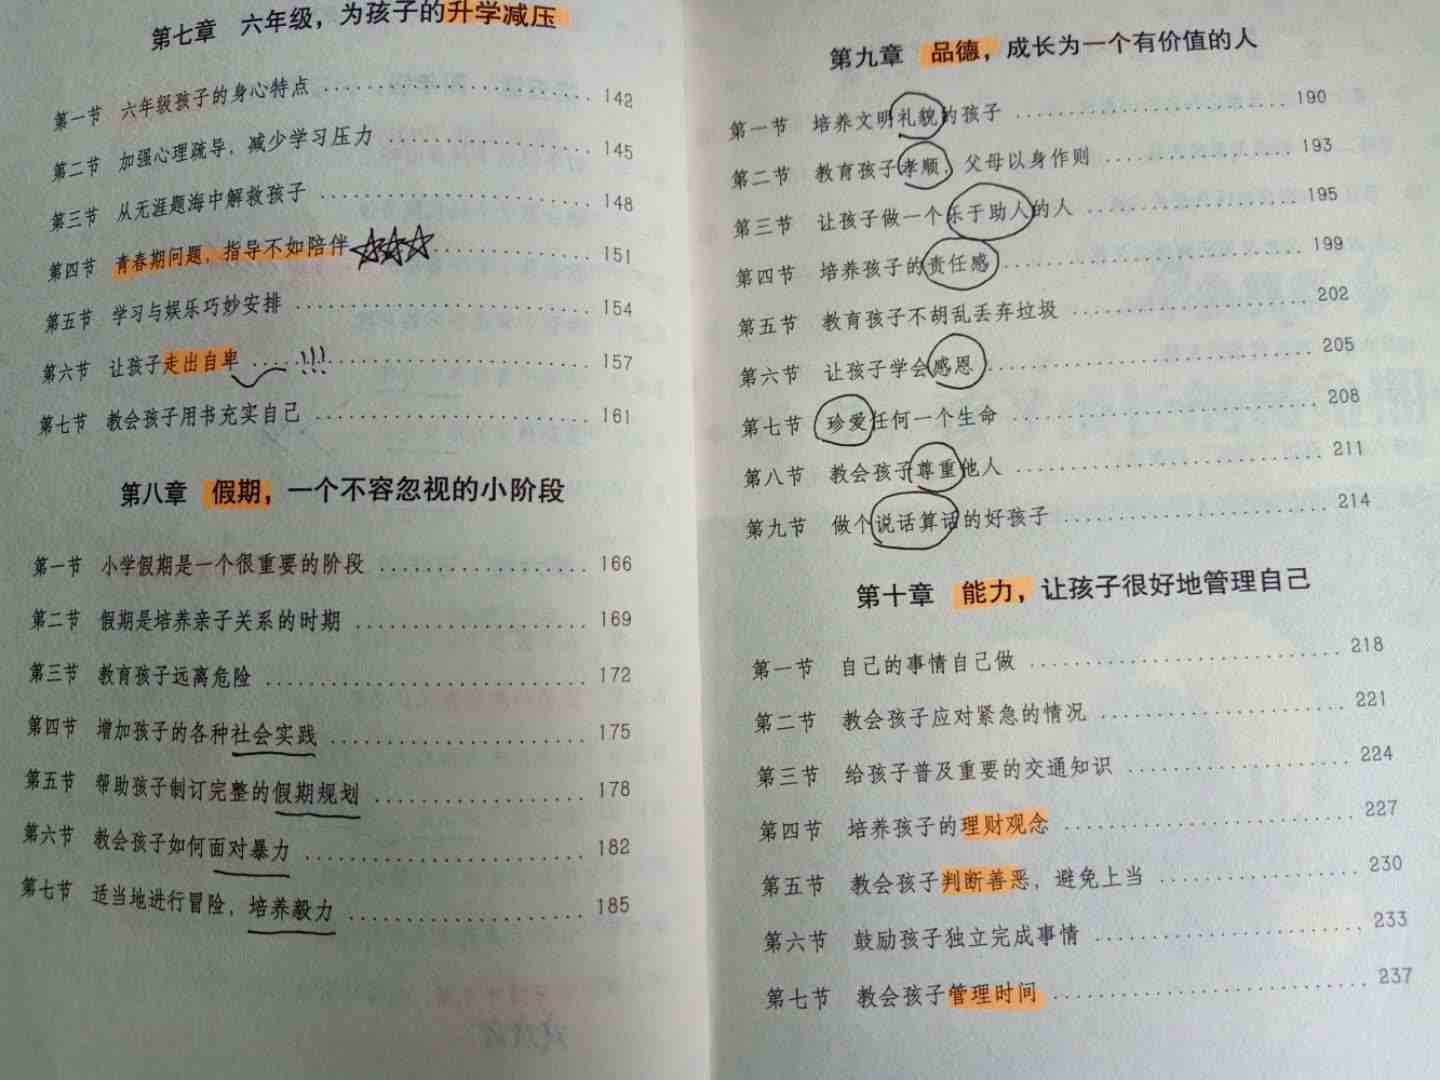 第七章 六年级，为孩子的升学减压
第一节 六年级孩子的身心特点 142
第二节 加强心理疏导，减少学习压力 145
第三节 从无涯题海中解救孩子 148
第四节 青春期问题，指导不如陪伴 151
第五节 学习与娱乐巧妙安排 154
第六节 让孩子走出自卑 !!! 157
第七节 教会孩子用书充实自己 161
第八章 假期，一个不容忽视的小阶段
第一节 小学假期是一个很重要的阶段 166
第二节 假期是培养亲子关系的时期 169
第三节 教育孩子远离危险 172
第四节 增加孩子的各种社会实践 175
第五节 帮助孩子制订完整的假期规划 178
第六节 教会孩子如何面对暴力 182
第七节 适当地进行冒险，培养毅力 185
第九章 品德，成长为一个有价值的人
第一节 培养文明礼貌的孩子 190
第二节 教育孩子孝顺，父母以身作则 193
第三节 让孩子做一个乐于助人的人 195
第四节 培养孩子的责任感 199
第五节 教育孩子不胡乱丢弃垃圾 202
第六节 让孩子学会感恩 205
第七节 珍爱任何一个生命 208
第八节 教会孩子尊重他人 211
第九节 做个说话算话的好孩子 214
第十章 能力，让孩子很好地管理自己
第一节 自己的事情自己做 218
第二节 教会孩子应对紧急的情况 221
第三节 给孩子普及重要的交通知识 224
第四节 培养孩子的理财观念 227
第五节 教会孩子判断善恶，避免上当 230
第六节 鼓励孩子独立完成事情 233
第七节 教会孩子管理时间 237